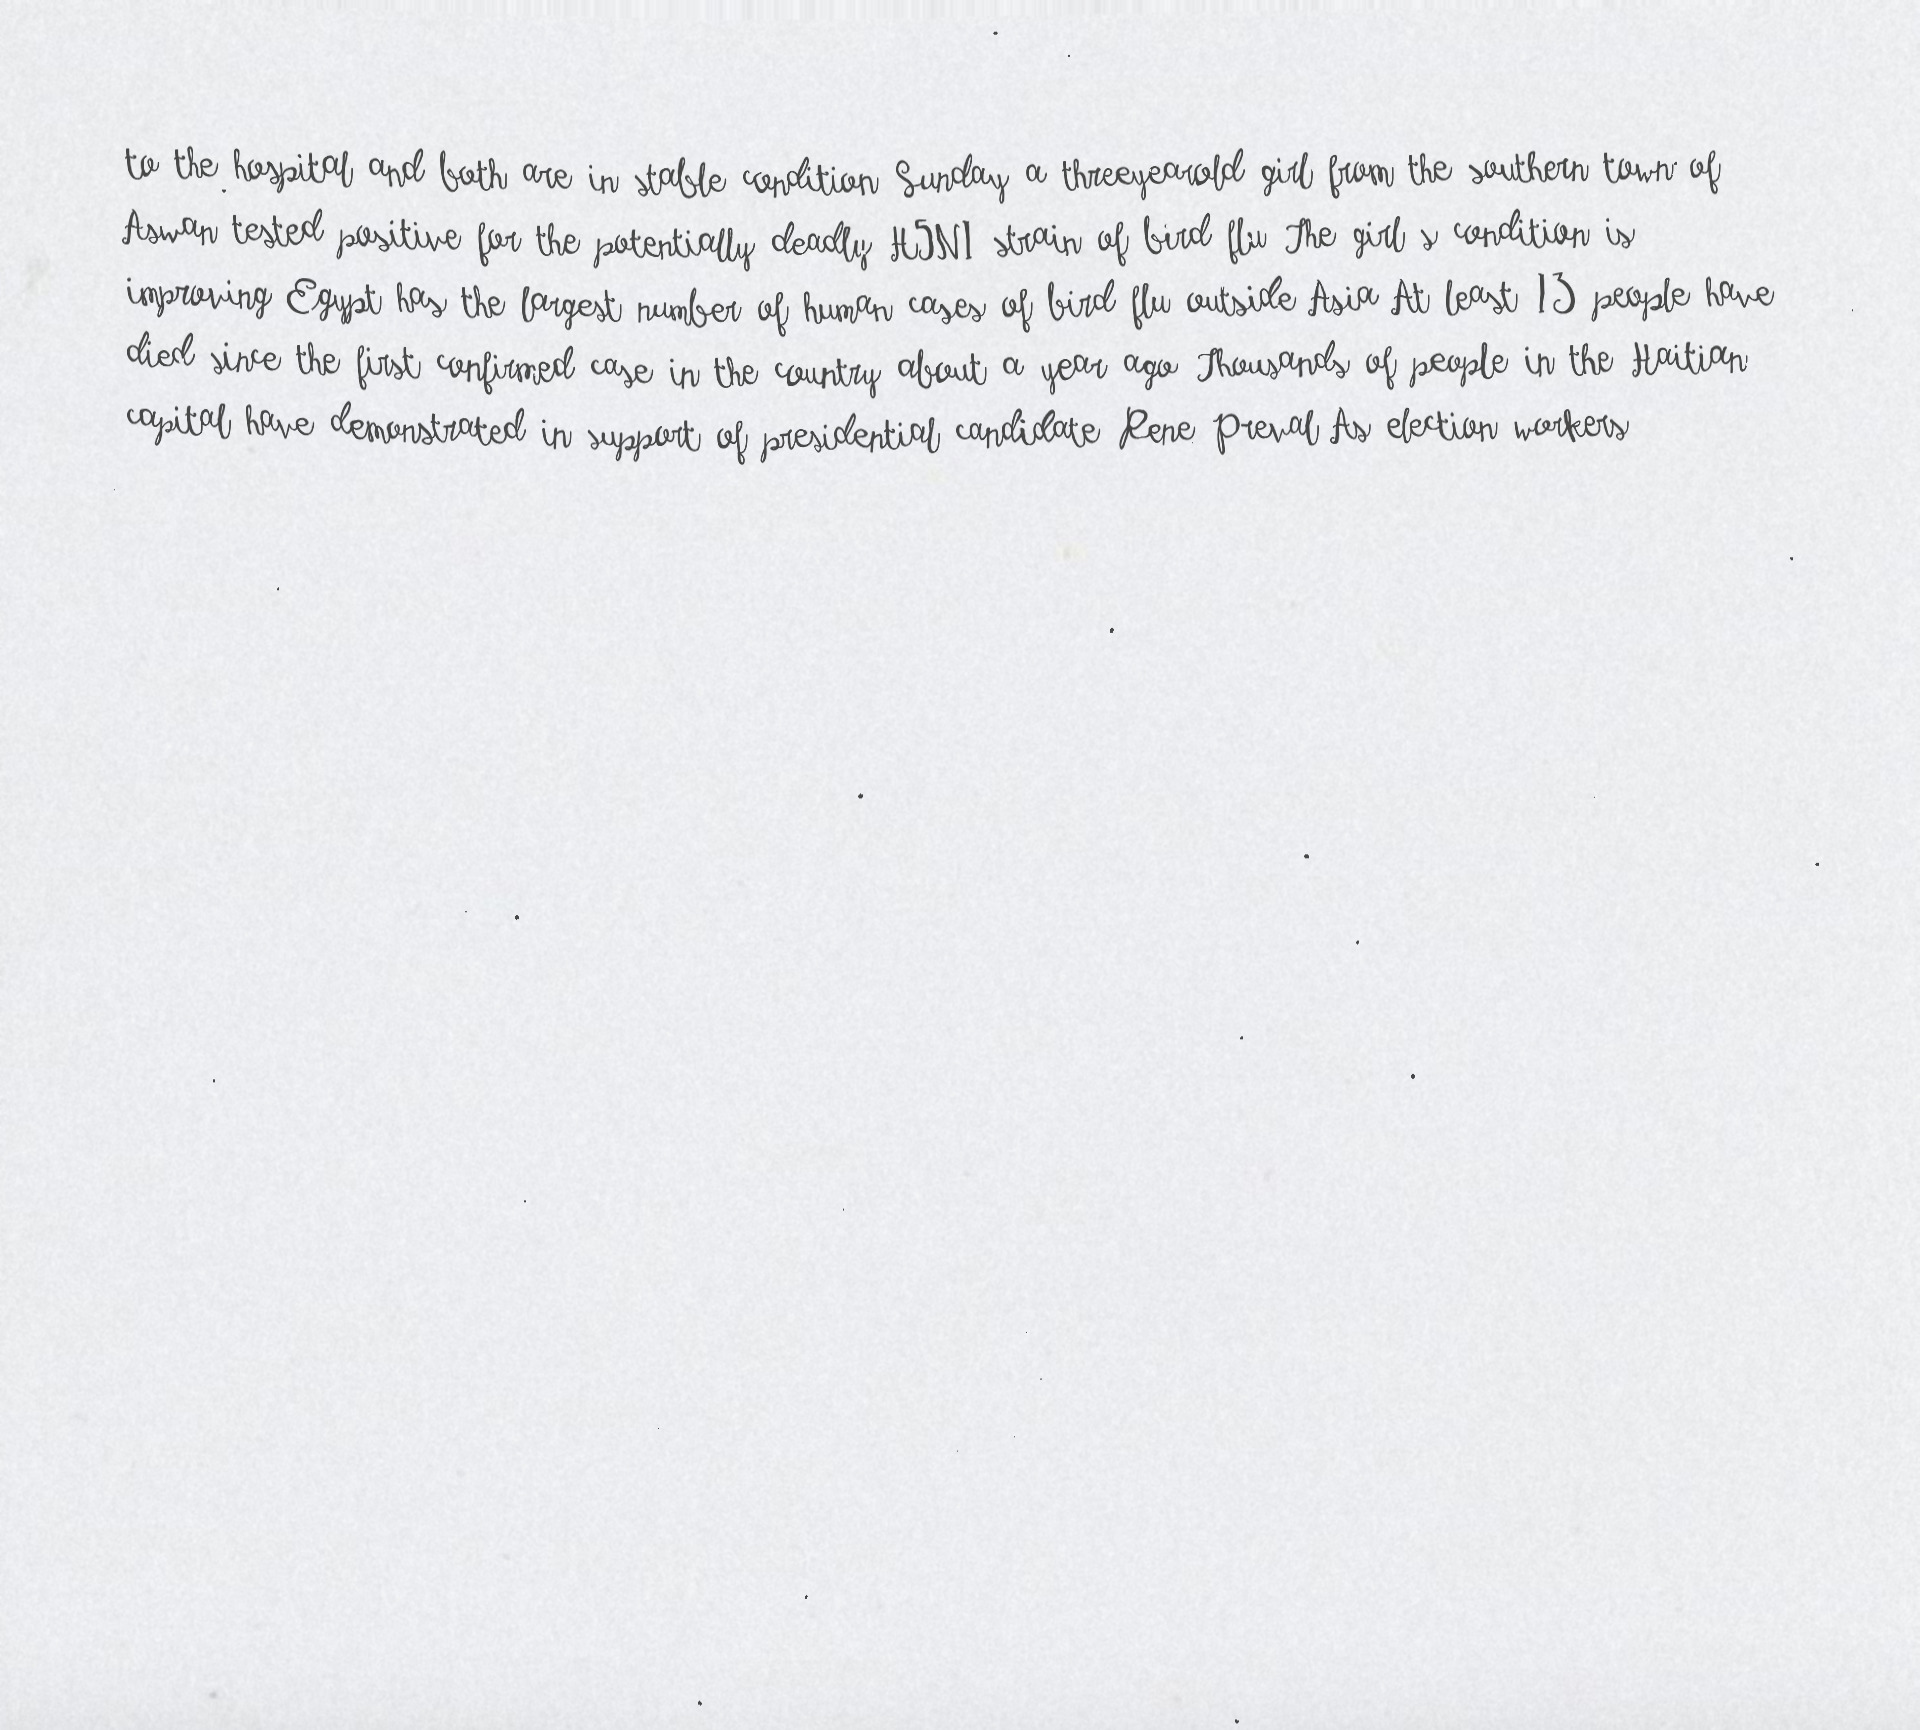 to the hospital and both are in stable condition Sunday a threeyearold girl from the southern town of
Aswan tested positive for the potentially deadly H5N1 strain of bird flu The girl s condition is
improving Egypt has the largest number of human cases of bird flu outside Asia At least 13 people have
died since the first confirmed case in the country about a year ago Thousands of people in the Haitian
capital have demonstrated in support of presidential candidate Rene Preval As election workers